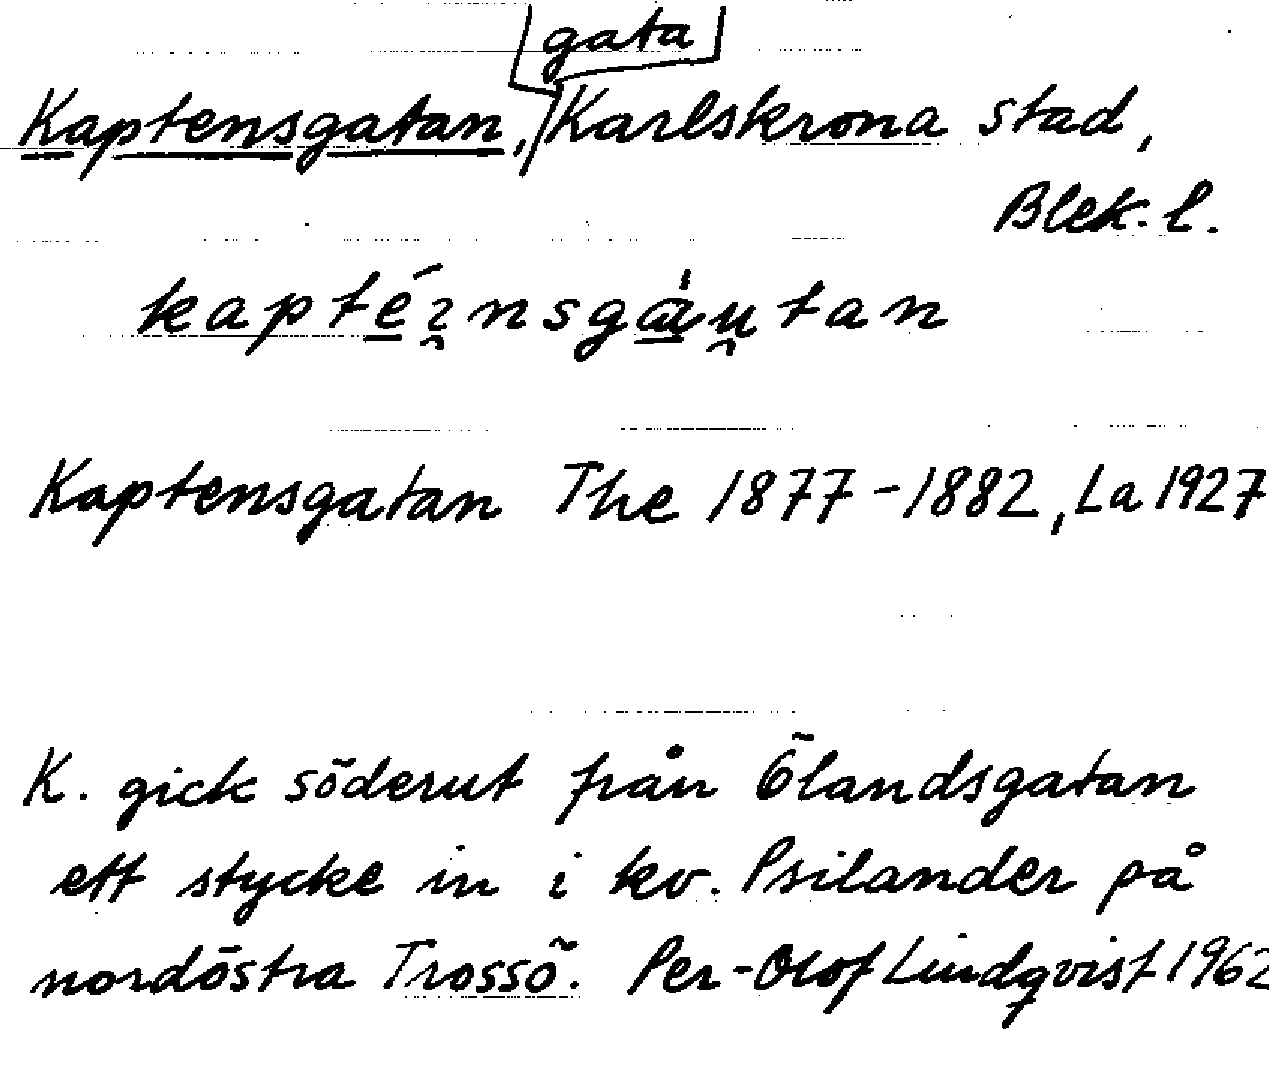 gata
Kaptensgatan, Karlskrona stad,
Blek. l.
Kaptensgatan The 1877-1882, La 1927
K. gick söderut från Ölandsgatan
ett stycke in i kv. Psilander på
nordöstra Trossö. Per-Olof Lindqvist 1962